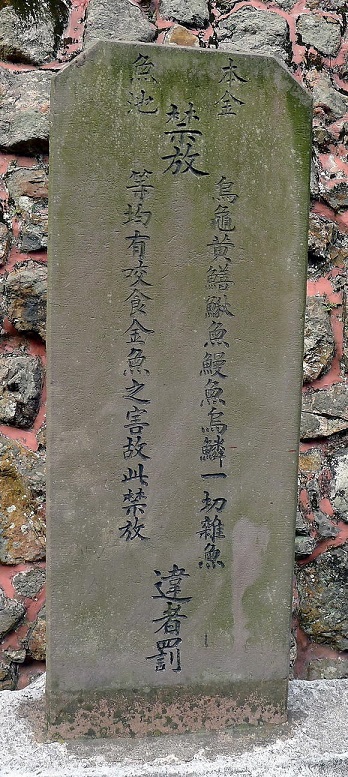 本金
魚池
禁放
烏龜黃鱔鰍魚鰻魚烏鱗一切雜魚
等均有咬食金魚之害故此禁放
違者罰